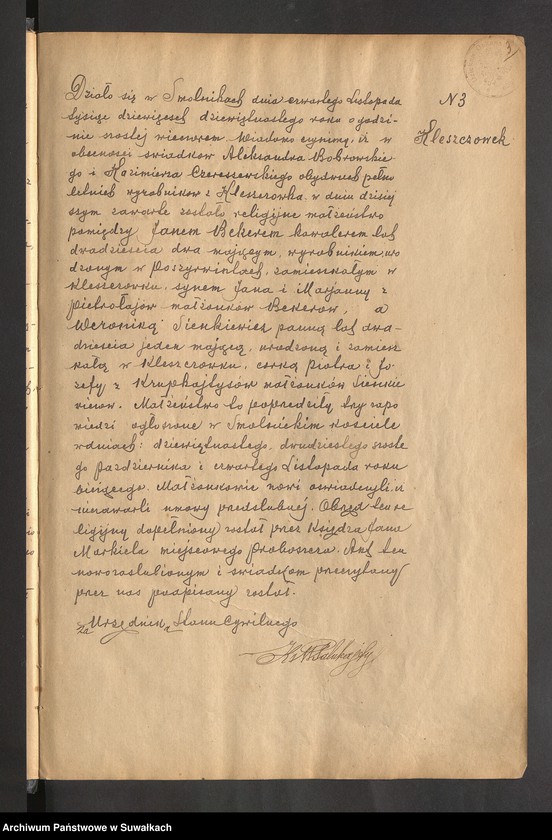 3
N 3
Kleszczówek
Działo się w Smolnikach dnia czwartego Listopada
tysiąc dziewięćset dziewiętnastego roku o godzi-
nie szóstej wieczorem. Wiadomo czynimy, iż w
obecności świadków Aleksandra Bobrowskie
go i Kazimierza Czereszewskiego obydwuch pełno
letnich wyrobników z Kleszczówka, w dniu dzisiej
szym zawarte zostało religijne małżeństwo
pomiędzy Janem Bekerem kawalerem lat
dwadzieścia dwa mającym, wyrobnikiem, uro
dzonym w zamieszkałym w
Kleszczówku, synem Jana i Marjanny z
małżonków Bekerów, a
Weroniką Sienkiewicz panną lat dwa-
dzieścia jeden mającą, urodzoną i zamiesz
kałą w Kleszczówku, córką Piotra i Jó-
zefy z Krupkajtysów małżonków Sienkie
wiczów. Małżeństwo to poprzedziły trzy zapo
wiedzi ogłoszone w Smolnickim kościele
w dniach: dziewiętnastego, dwudziestego szóste
go Października i Listopada roku
bieżącego. Małżonkowie nowi oświadczyli, iż
niezawarli umowy przedślubnej. Obrzęd ten re
ligijny dopełniony został przez Księdza Jana
Markiela miejscowego proboszcza. Akt ten
nowozaślubionym i świadkom przeczytany
przez nas podpisany został.
za Urzędnika Stanu Cywilnego
Archiwum Państwowe w Suwałkach